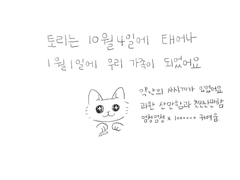 토리는 10월 4일에 태어나
1월 1일에 우리 가족이 되었어요
약간의 사시끼가 있었어요
과한 산만함과
엉청엉청 × 100000 귀여움